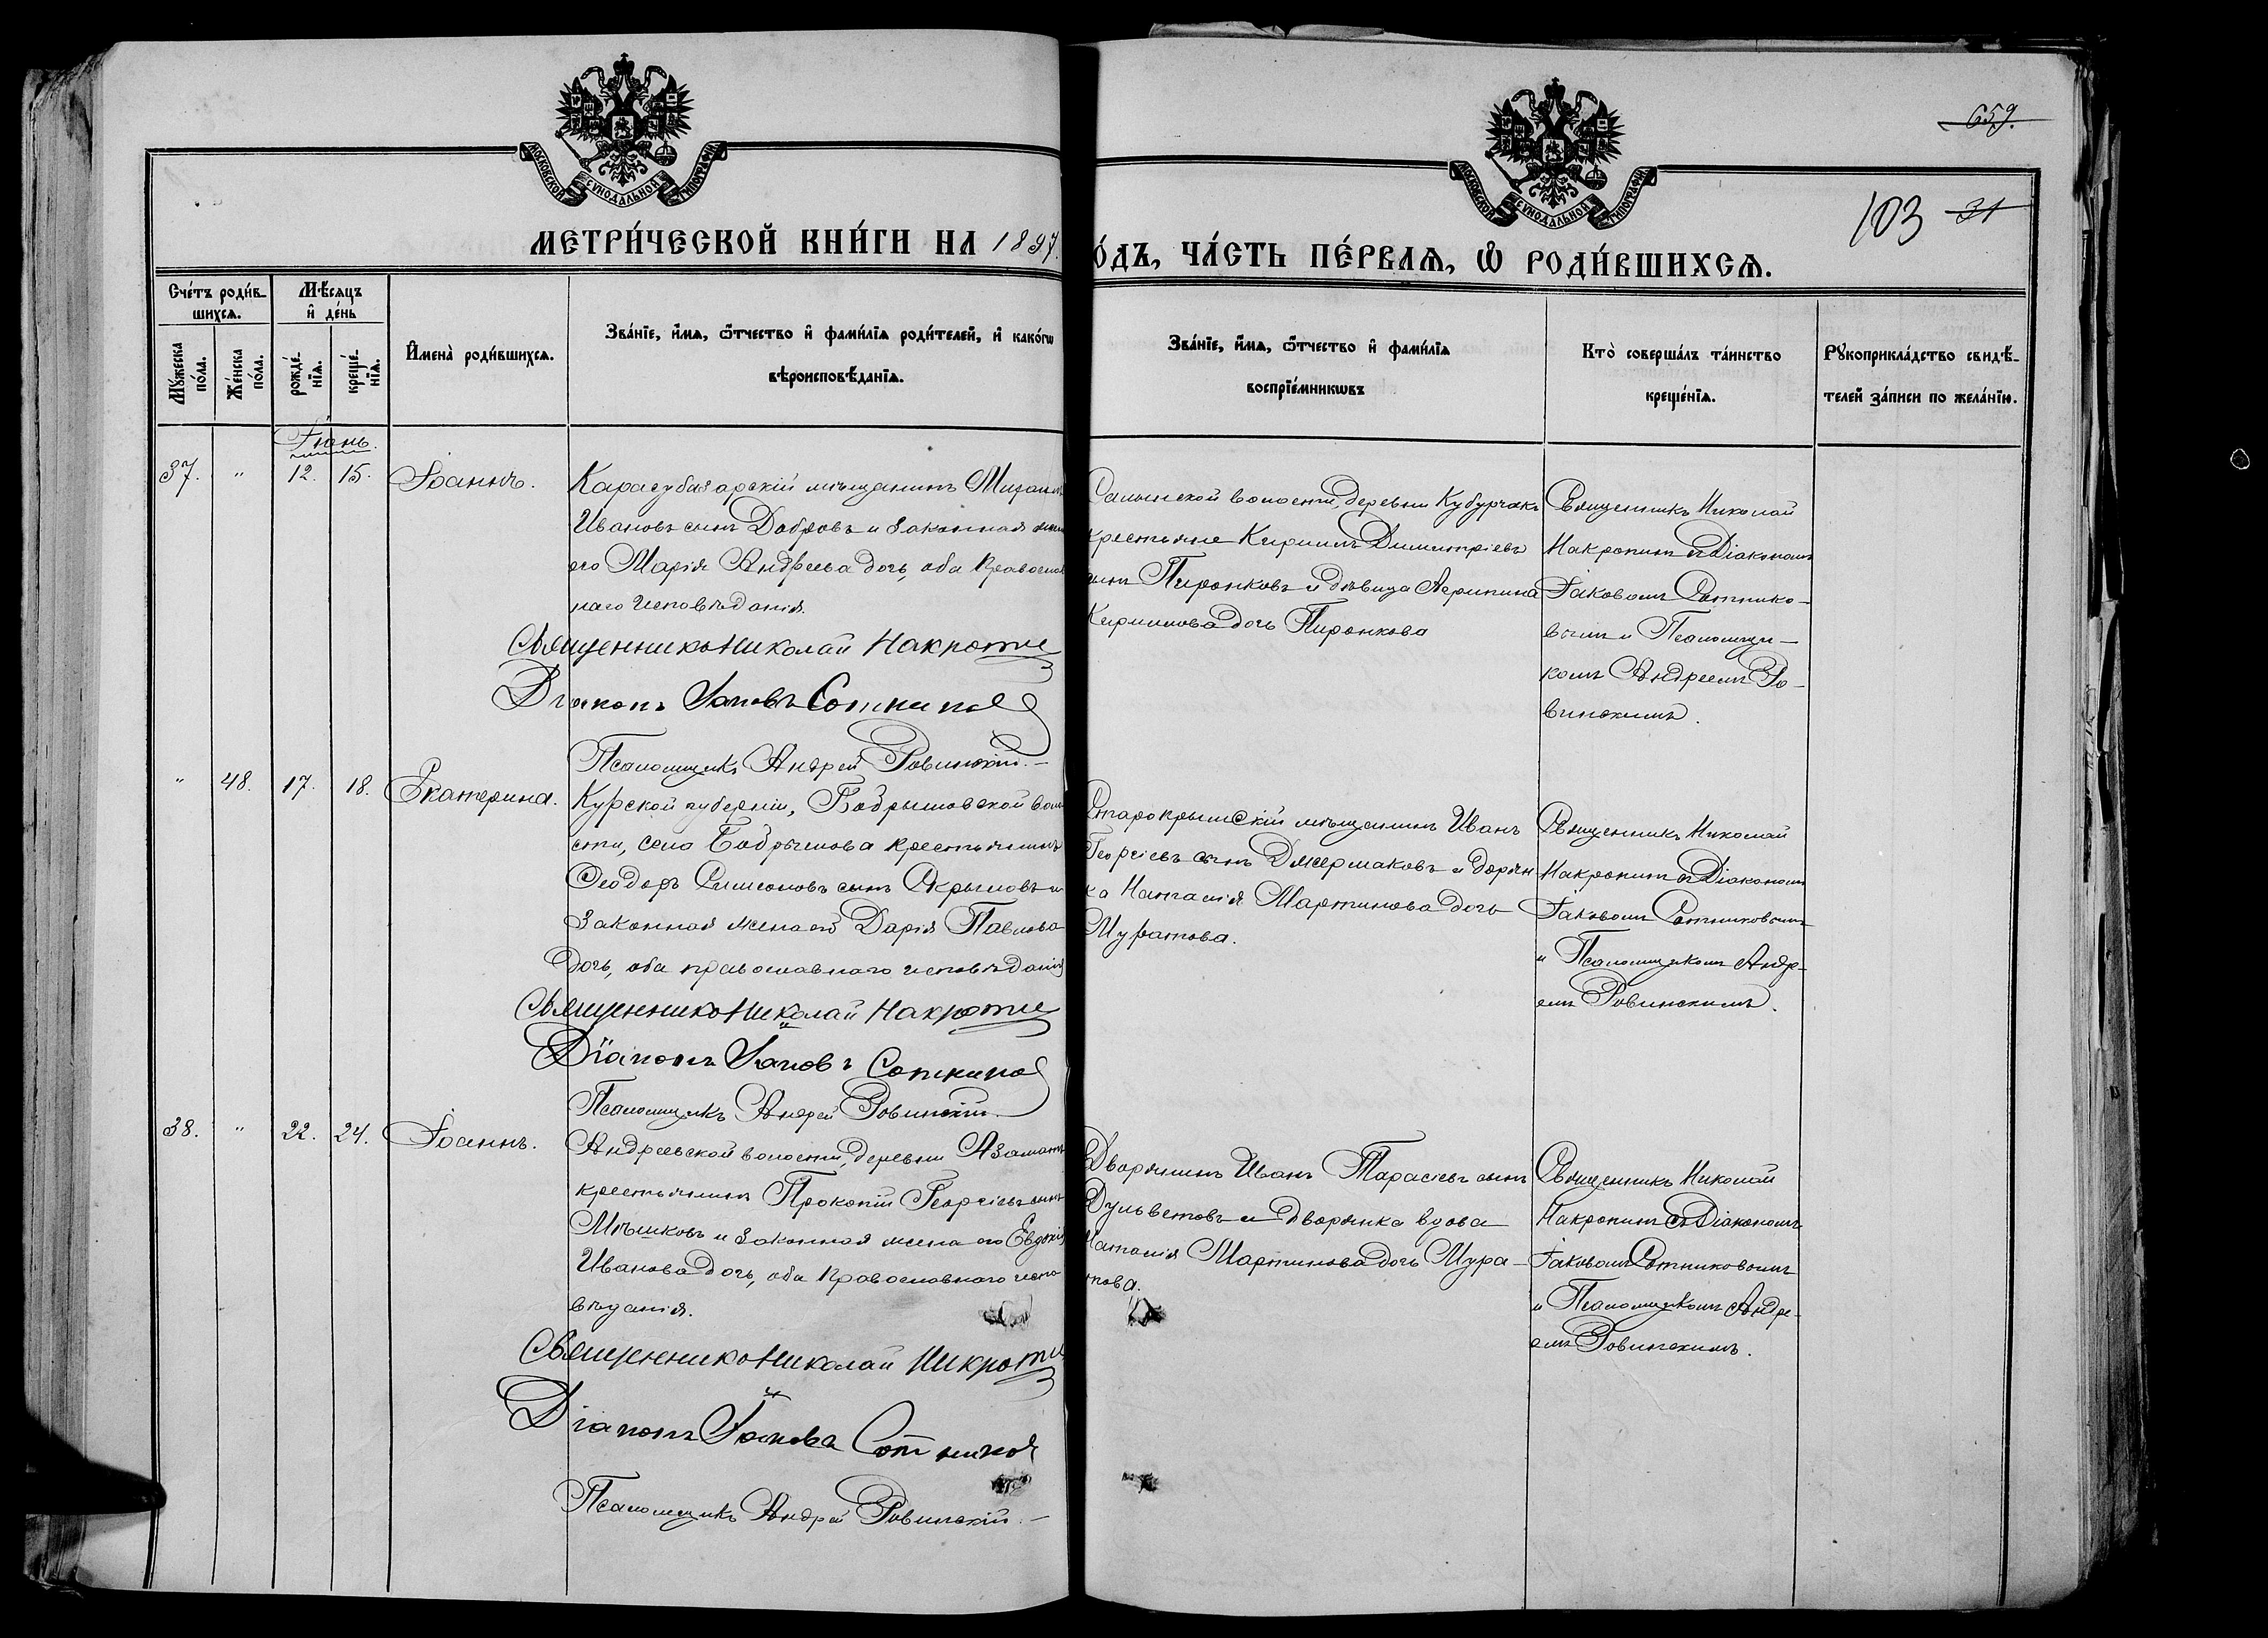 659.
103 31
МОСКОВСКОЙ СУНОДАЛЬНОЙ ТИПОГРАФІИ
МОСКОВСКОЙ СУНОДАЛЬНОЙ ТИПОГРАФІИ
МЕТРИ́ЧЕСКОЙ КНИ́ГИ НА 1897.
О́ДЪ, ЧА́СТЬ ПЕ́РВАѦ, Ѡ РОДИ́ВШИХСѦ.
Сче́тъ роди́в-
шихсѧ.
Мѣ́сѧцъ
и҆ де́нь
Мꙋ́жеска по́ла.
Же́нска по́ла.
рожде́нїѧ.
креще́нїѧ.
И҆мена̀ роди́вшихсѧ.
Зва́нїе, и҆́мѧ, ѻ҆́тчество и҆ фами́лїѧ роди́телей, и҆ како́гѡ
вѣроисповѣ́данїѧ.
Зва́нїе, и҆́мѧ, ѻ҆́тчество и҆ фами́лїѧ
воспрїе́мникѡвъ
Кто̀ соверша́лъ та́инство
креще́нїѧ.
Рꙋкоприкла́дство свидѣ́-
телей за́писи по жела́нїю.
Іюнь.
37. " 12. 15. Іоаннъ.
Карасубазарскій мѣщанинъ Михаилъ
Ивановъ сынъ Добровъ и законная жена
его Марія Андреева дочь, оба Православ
наго исповѣданія.
Священникъ Николай Накропин
Діаконъ Іаковъ Сотников
Псаломщикъ Андрей Ровинскій.
Салынской волости, деревни Кубурчакъ
крестьяне Кириллъ Димитріевъ
сынъ Пиронковъ и дѣвица Агрипина
Кириллова дочь Пиронкова
Священникъ Николай
Накропинъ съ Діакономъ
Іаковомъ Сотнико-
вымъ и Псаломщи-
комъ Андреемъ Ро-
винскимъ.
" 48. 17. 18. Екатерина.
Курской губерніи, Бобрышовской воло
сти, села Бобрышова крестьянинъ
Ѳеодоръ Симеоновъ сынъ Скрыловъ и
законная жена его Дарія Павлова
дочь, оба православнаго исповѣданія
Священникъ Николай Накропин
Діаконъ Іаковъ Сотников
Псаломщикъ Андрей Ровинскій.
Старокрымскій мѣщанинъ Иванъ
Георгіевъ сынъ Джермаковъ и дворян
ка Наталія Мартинова дочь
Муратова.
Священникъ Николай
Накропинъ съ Діакономъ
Іаковомъ Сотниковымъ
и Псаломщикомъ Андре-
емъ Ровинскимъ.
38. " 22. 24. Іоаннъ.
Андреевской волости, деревни Азаматъ
крестьянинъ Прокопій Георгіевъ сынъ
Мѣшковъ и законная жена его Евдокія
Иванова дочь, оба Православнаго испо
вѣданія.
Священникъ Николай Накропин
Діаконъ Іаковъ Сотников
Псаломщикъ Андрей Ровинскій.
Дворянинъ Иванъ Тарасіевъ сынъ
Дульветовъ и дворянка вдова
Наталія Мартинова дочь Мура-
това.
Священникъ Николай
Накропинъ съ Діакономъ
Іаковомъ Сотниковымъ
и Псаломщикомъ Андре-
емъ Ровинскимъ.